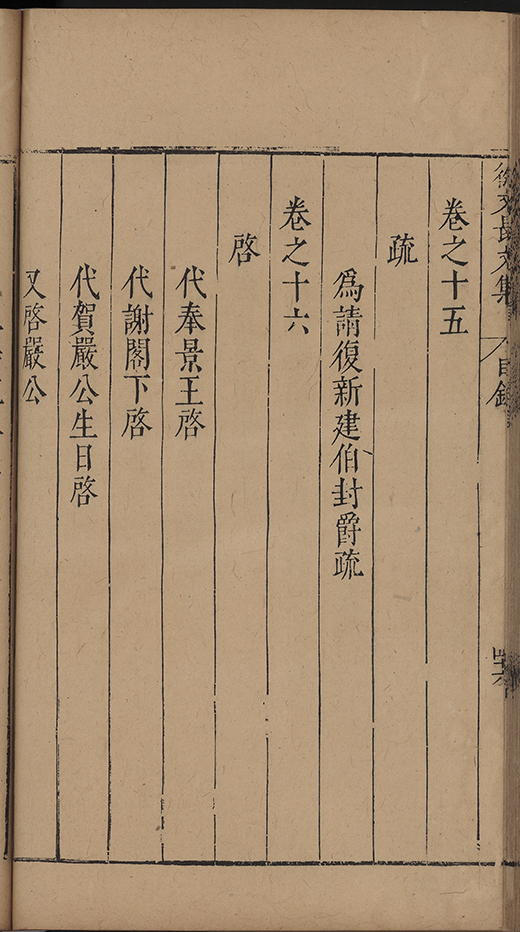 徐文長文集 目錄
卷之十五
疏
爲請復新建伯封爵疏
卷之十六
啓
代奉景王啓
代謝閣下啓
代賀嚴公生日啓
又啓嚴公